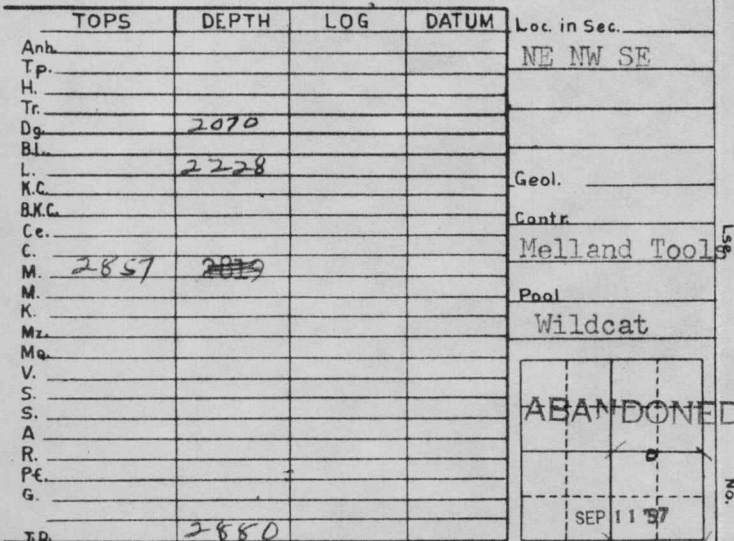 TOPS DEPTH LOG DATUM
Anh.
Tp.
H.
Tr.
Dg. 2070
B.L.
L. 2228
K.C.
B.K.C.
Ce.
C.
M. 2857 2819
M.
K.
Mz.
Mq.
V.
S.
S.
A
R.
P€.
G.
T.D. 2880
Loc. in Sec.
NE NW SE
Geol.
Contr.
Melland Tools
Pool
Wildcat
ABANDONED
SEP 11 '57
Lse.
No.